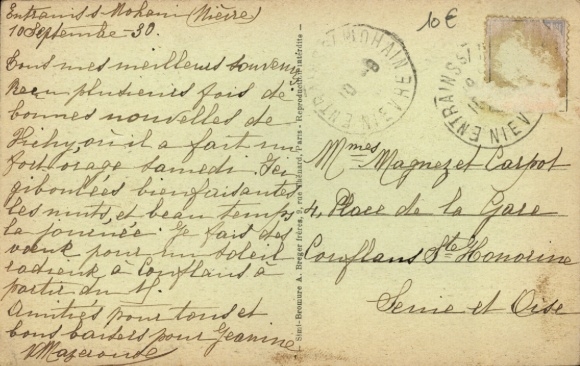 Entrains s Nohain (Nièvre)
10 Septembre - 30.
Tous mes meilleurs souvenirs
Reçu plusieurs fois de
bonnes nouvelles de
Vichy, où il a fait un
fort orage samedi. Ici
giboulées bienfaisantes
les nuits, et beau temps
la journée. Je fais des
vœux pour un soleil
radieux à Conflans à
partir du 15.
Amitiés pour tous et
bons baisers pour Jeanine
Simi-Bromure A. Breger frères, 9, rue Thénard, Paris - Reproduction interdite -
10€
ENTRAINS-S-NOHAIN NIEVRE
ENTRAINS-S NIEV
Mmes Magnez et Carpot
4, Place de la Gare
Conflans Ste Honorine
Seine et Oise